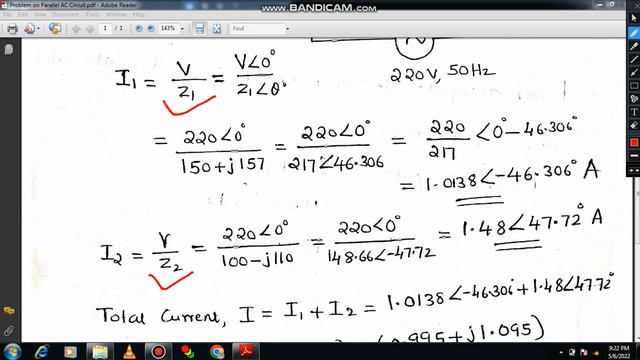 Problem on Parallel AC Circuit.pdf - Adobe Reader
WWW.BANDICAM.COM
File Edit View Window Help
1 / 1
143%
I₁ = V/Z₁ = V∠0°/Z₁∠θ°
220V, 50Hz
= 220∠0°/150+j157 = 220∠0°/217∠46.306 = 220/217 ∠0°-46.306°
= 1.0138∠-46.306° A
I₂ = V/Z₂ = 220∠0°/100-j110 = 220∠0°/148.66∠-47.72 = 1.48∠47.72° A
Total Current, I = I₁+I₂ = 1.0138∠-46.306+1.48∠47.72°
0.995+j1.095)
9:22 PM
5/6/2022